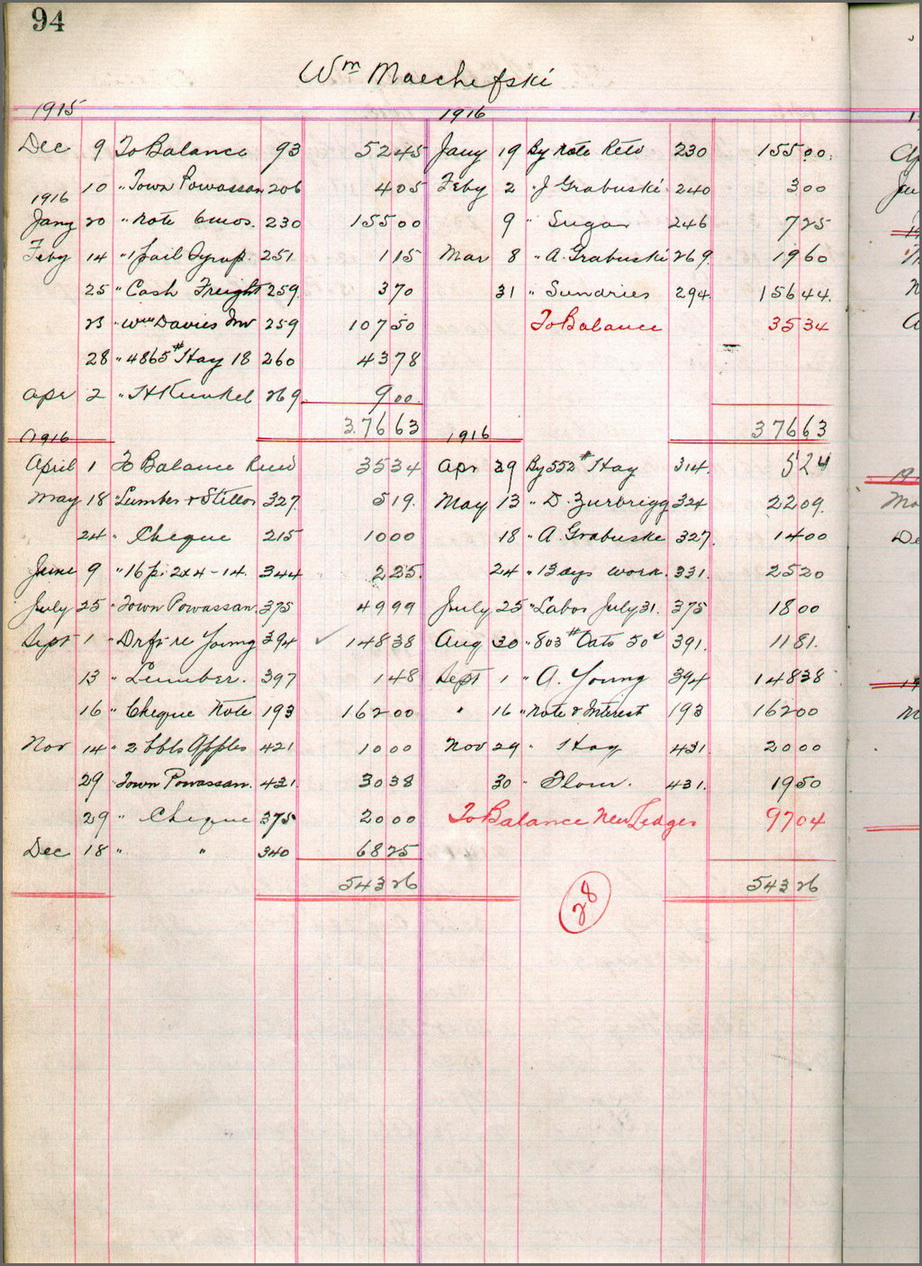 94
Wm Maechefski
1915 1916
Dec 9 To Balance 93 52 45 Jany 19 By Note Retd 230 155 00
10 " Town Powassan 206 4 05 Feby 2 " J Grabuski 240 3 00
1916
Jany 20 " Note 6mos. 230 155 00 9 " Sugar 246 7 25
Feby 14 " 1 pail Syrup. 251 1 15 Mar 8 " A. Grabuski 269 19 60
25 " Cash Freight 259 3 70 31 " Sundries 294 156 44
23 " Wm Davies Inv 259 107 50 To Balance 35 34
28 " 4865# Hay 18 260 43 78
Apr 2 " H Kunkel 269 9 00
376 63 376 63
1916 1916
April 1 To Balance 35 34 Apr 29 By 552# Hay 314 5 24
May 18 " Lumber & 327 5 19 May 13 " D. Zurbrigg 324 22 09
24 " Cheque 215 10 00 18 " A. Grabuske 327 14 00
June 9 " 16 pc 2x4-14. 344 2 25 24 " 13 days work. 331. 25 20
July 25 " Town Powassan 375 49 99 July 25 " Labor July 31. 375 18 00
Sept 1 " Drft re Young 394 ✓ 148 38 Aug 30 " 803# Oats 50c 391. 11 81
13 " Lumber. 397 1 48 Sept 1 " A. Young 394 148 38
16 " Cheque Note 193 162 00 " 16 " Note & Interest 193 162 00
Nov 14 " 2 bbls Apples 421 10 00 Nov 29 " Hay 431 20 00
29 Town Powassan. 431. 30 38 30 " Flour. 431. 19 50
29 " Cheque 375 20 00 To Balance New Ledger 97 04
Dec 18 " " 340 68 25
543 26 543 26
28